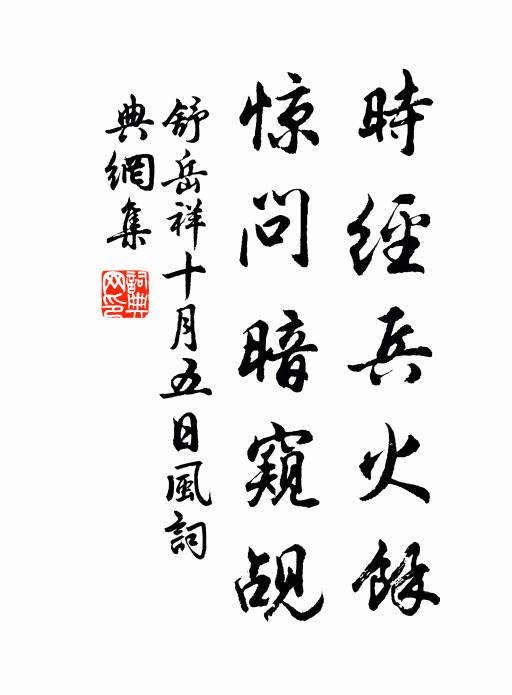 時經兵火餘
惊问暗窺觇
舒岳祥十月五日風詞
典網集
詞典
网印